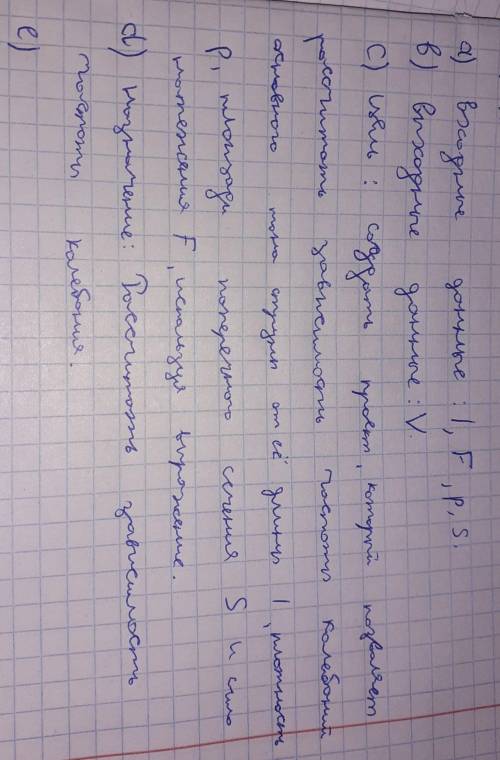 a) входные данные: l, F, p, S.
b) выходные данные: V.
c) Цель: создать проект, который позваляет
рассчитать зависимость частоты колебаний
основного тона струны от её длины l, плотность
p, площади поперечного сечения S и силы
натежения F, используя выражение.
d) назначение: Рассчитать зависимость
частоты колебания.
e)